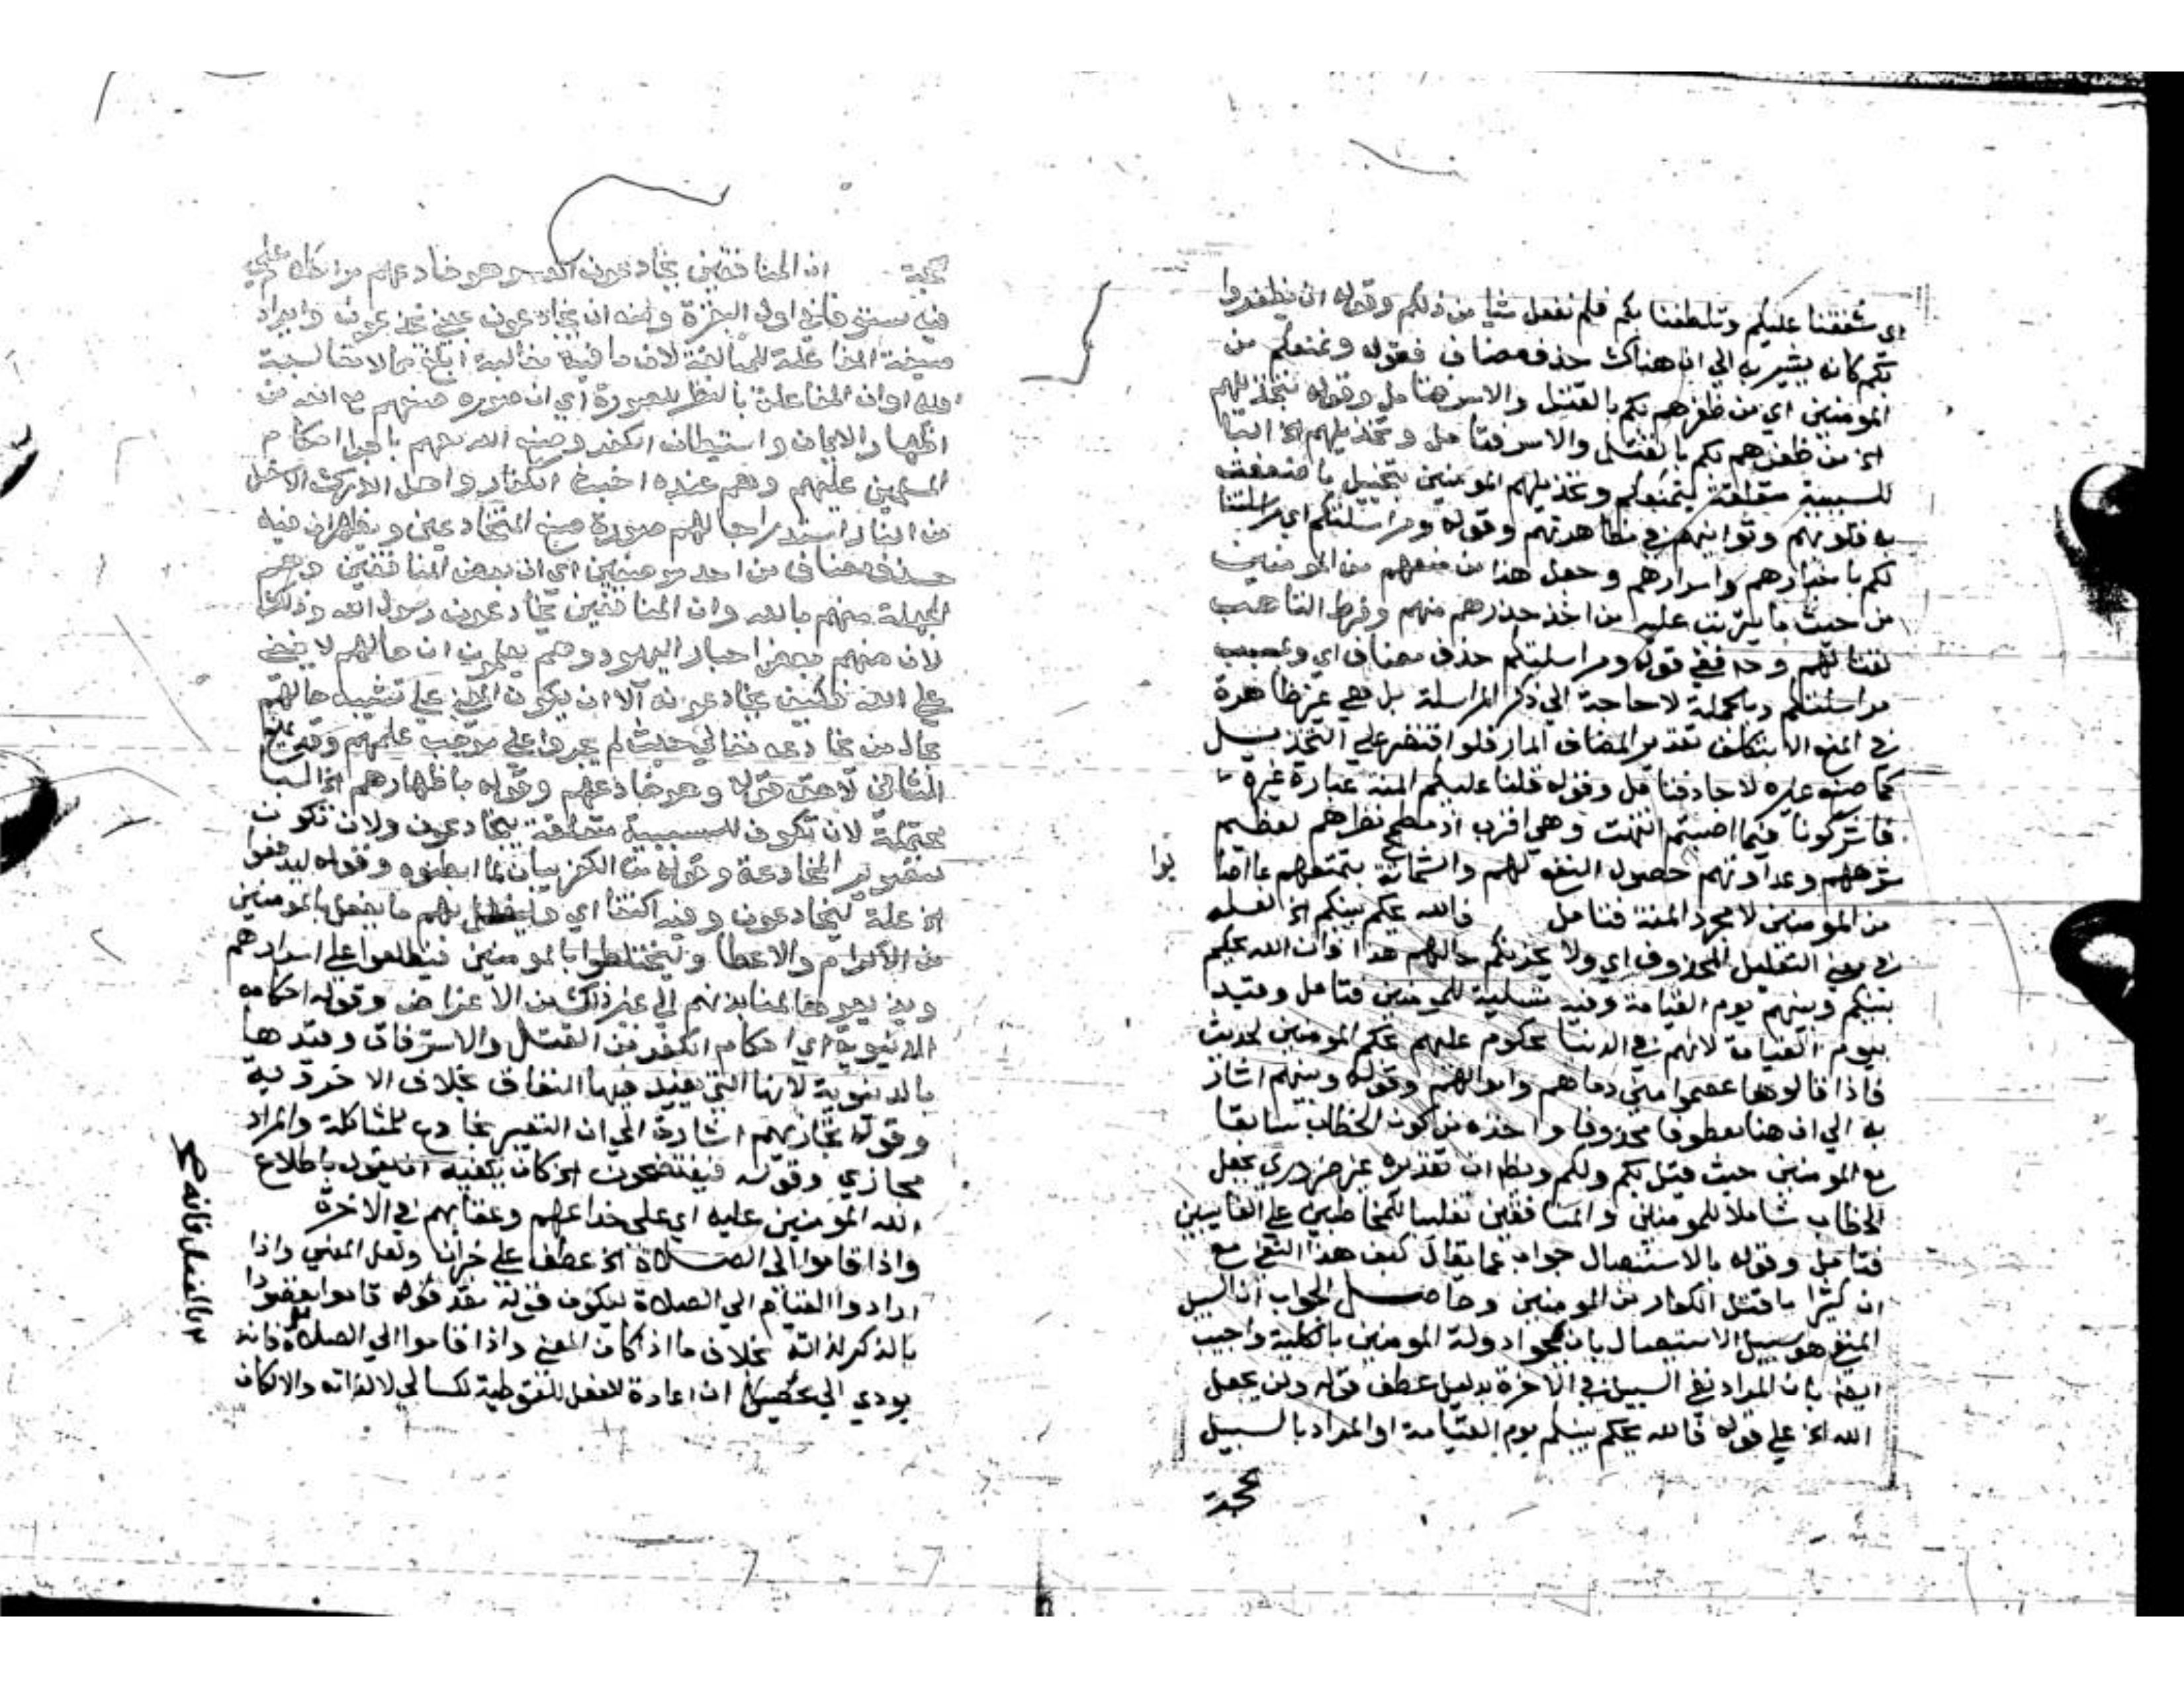 اي شفقنا عليكم وتلطفنا بكم فلم نفعل شيا من ذلكم وقوله ان يظفروا
بكم كانه يشير به الي ان هناك حذف مضاف فقوله ونمنعكم من
المومنين اي من ظفرهم بكم بالقتل والاسر فتامل وقوله بتخذيلهم
اي من ظفرهم بكم بالقتل والاسر فتامل وتخذيلهم الخ البا
للسببية متعلقة بنمنعكم وتخذيلهم المومنين بتخييل ما ضعفت
به قلوبهم وتوانيهم في مظاهرتهم وقوله ومراسلتكم اي مراسلتنا
لكم باخبارهم واسرارهم وجعل هذا من منعهم من المومنين
من حيث ما يترتب عليه من اخذ حذرهم منهم وفرط التاهب
لقتالهم وح ففي قوله ومراسلتكم حذف مضاف اي وبسبب
مراسلتكم وبالجملة لا حاجة الي ذكر المراسلة بل هي غير ظاهرة
في المنع الا بتكلف تقدير المضاف المار فلو اقتصر علي التخذيل
كما صنع غيره لاجاد فتامل وقوله فلنا عليكم المنة عبارة غيره
فاشركونا فيما اصبتم انتهت وهي اقرب اذ مطمح نظرهم لعظيم
شرههم وعداوتهم حصول النفع لهم والشماتة بتمتعهم بما اصا
بوا
من المومنين لا مجرد المنة فتامل فالله يحكم بينكم الخ لعله
في معني التعليل لمحذوف اي ولا يحزنكم حالهم هذا فان الله يحكم
بينكم وبينهم يوم القيامة وفيه تسلية للمومنين فتامل وقيد
بيوم القيامة لانهم في الدنيا محكوم عليهم بحكم المومنين لحديث
فاذا قالوها عصموا مني دماهم واموالهم وقوله وبينهم اشار
به الي ان هنا معطوفا محذوفا واخذه من كون الخطاب سابقا
مع المومنين حيث قيل بكم ولكم ويظهر ان تقديره غير ضروري بجعل
الخطاب شاملا للمومنين والمنافقين تغليبا للمخاطبين علي الغايبين
فتامل وقوله بالاستيصال جواب عما يقال كيف هذا النفي مع
ان كثيرا ما قتل الكفار من المومنين وحاصل الجواب ان السبيل
المنفي هو سبيل الاستيصال بان يمحوا دولة المومنين بالكلية واجيب
ايضا بان المراد نفي السبيل في الاخرة بدليل عطف قوله ولن يجعل
الله الخ علي قوله فالله يحكم بينكم يوم القيامة او المراد بالسبيل
حجة
حجة ان المنافقين يخادعون الله وهو خادعهم مر الكلام علي
فيه مستوفا في اول البقرة ومنه ان يخادعون بمعني يخدعون وايراد
صيغة المفاعلة للمبالغة لان ما فيه مغالبة ابلغ مما لا مغالبة
فيه او ان المفاعلة بالنظر للصورة اي ان صورة صنعهم مع الله من
اظهار الايمان واستبطان الكفر وصنع الله معهم باجرا احكام
المسلمين عليهم وهم عنده اخبث الكفار واهل الدرك الاسفل
من النار استدراجا لهم صورة صنع المتخادعين ويظهر ان فيه
حذف مضاف من احد موضعين اي ان بعض المنافقين وهم
الجهلة منهم بالله وان المنافقين يخادعون رسول الله وذلك
لان منهم بعض احبار اليهود وهم يعلمون ان حالهم لا يخفي
علي الله فكيف يخادعونه الا ان يكون المعني علي تشبيه حالهم
بحال من يخادعه تعالي حيث لم يجروا علي موجب علمهم
الثاني لاحق قوله وهو خادعهم وقوله باظهارهم الخ البا
محتملة لان تكون للسببية متعلقة بيخادعون ولان تكون
لتصوير المخادعة وقوله من الكفر بيان لما ابطنوه وقوله ليدفعوا
الخ علة ليخادعون وفيه اكتفا اي وليفعل بهم ما يفعل بالمومنين
من الاكرام والاعطا وليختلطوا بالمومنين فيطلعوا علي اسرارهم
ويذيعوها لمنابذيهم الي غير ذلك من الاغراض وقوله احكامه
الدنيوية اي احكام الكفر من القتل والاسترقاق وقيدها
بالدنيوية لانها التي يفيد فيها النفاق بخلاف الاخروية
وقوله مجازيهم اشارة الي ان التعبير بخادع للمشاكلة والمراد
مجازي وقوله فيفتضحون الخ كان يكفيه ان يقول باطلاع
الله المومنين عليه اي علي خداعهم وعقابهم في الاخرة
واذا قاموا الي الصلاة الخ عطف علي خبر ان ولعل المعني واذا
ارادوا القيام الي الصلاة ليكون قوله بعد قوله قاموا
بالذكر لذاته بخلاف ما اذا كان المعني واذا قاموا الي الصلاة فانه
يودي الي ان اعادة الفعل للتوطية لكسالي لا لذاته والا لكان